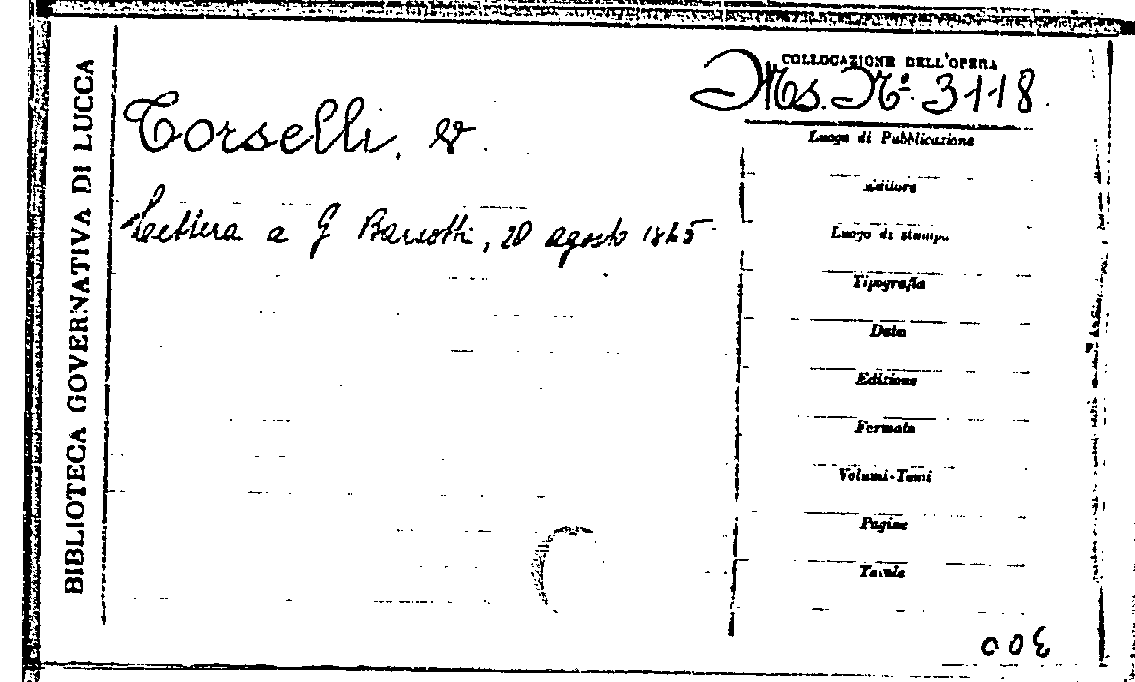 BIBLIOTECA GOVERNATIVA DI LUCCA
COLLOCAZIONE DELL'OPERA
Ms. N.º 3118.
Torselli, V.
Lettera a G Barsotti, 20 agosto 1865
Luogo di Pubblicazione
Editore
Luogo di stampa
Tipografia
Data
Edizione
Formato
Volumi-Tomi
Pagine
Tavole